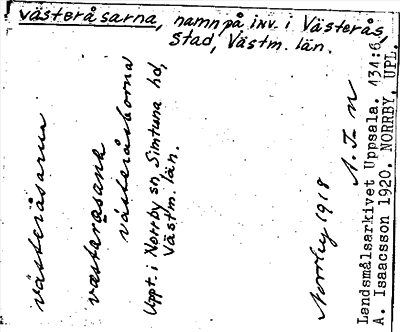 västeråsarna, namn på inv. i Västerås,
stad, Västm. län.
västeråsarna
västeråsank
västeråsborna
Uppt. i Norrby sn, Simtuna hd,
Västm. län.
Norrby 1918
Landsmålsarkivet Uppsala. 434:6
A. Isaacsson 1920. NORRBY, UPL.